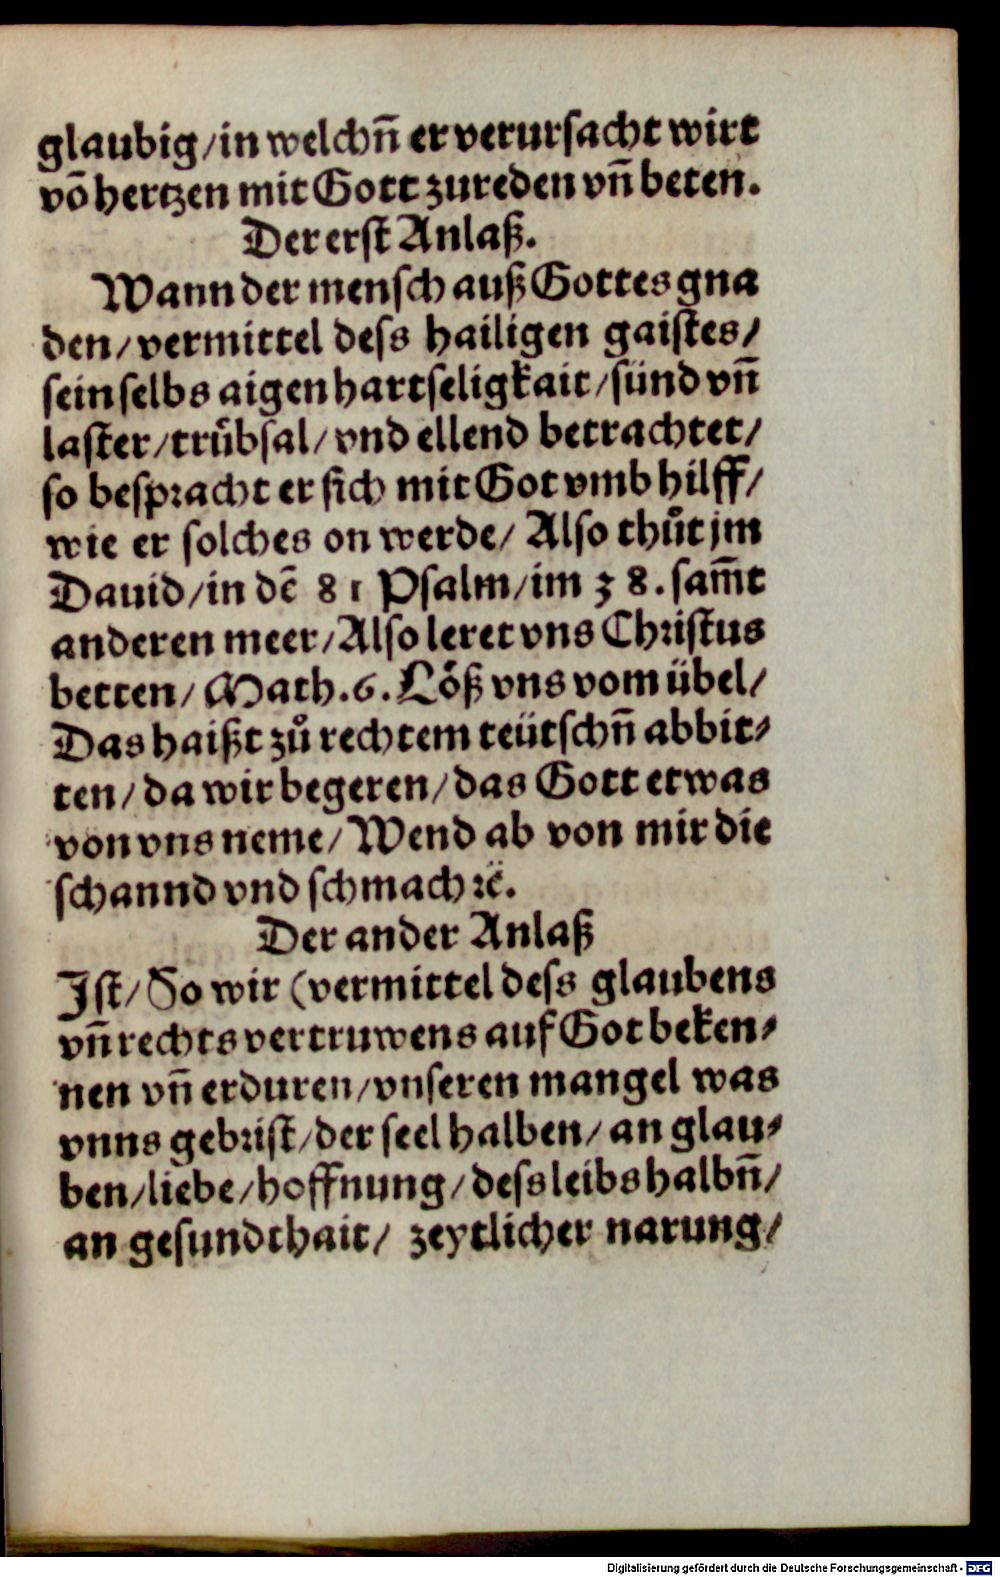 glaubig/in welchn̄ er verursacht wirt
võ hertzen mit Gott zureden vn̄ beten.
Der erst Anlaß.
Wann der mensch auß Gottes gna
den/vermittel dess hailigen gaistes/
sein selbs aigen hartseligkait/sünd vn̄
laster/truͤbsal/vnd ellend betrachtet/
so bespracht er sich mit Got vmb hilff/
wie er solches on werde/ Also thuͦt jm
Dauid/in dē 81 Psalm/im 38.sam̄t
anderen meer/Also leret vns Christus
betten/ Math.6. Loͤß vns vom übel/
Das haißt zuͦ rechtem teütschn̄ abbit⸗
ten/da wir begeren/das Gott etwas
von vns neme/Wend ab von mir die
schannd vnd schmach ꝛc̈.
Der ander Anlaß
Ist/So wir (vermittel dess glaubens
vn̄ rechts vertruwens auf Got beken⸗
nen vn̄ erduren/vnseren mangel was
vnns gebrist/der seel halben/an glau⸗
ben/liebe/hoffnung/dess leibs halbn̄/
an gesundthait/ zeytlicher narung/
Digitalisierung gefördert durch die Deutsche Forschungsgemeinschaft - DFG